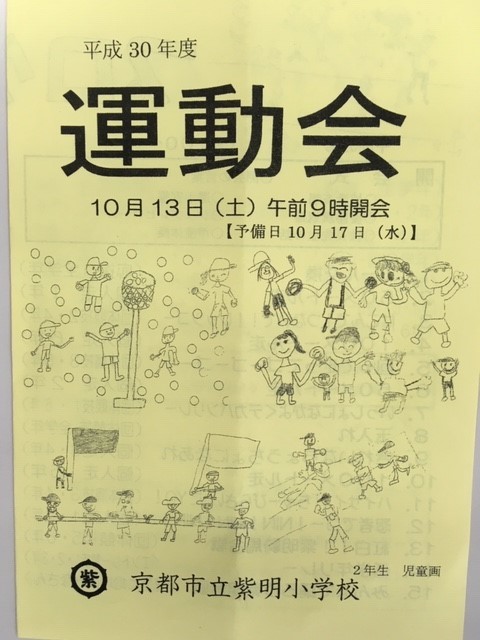 平成30年度
運動会
10月13日（土）午前9時開会
【予備日10月17日（水）】
2年生 児童画
紫 京都市立紫明小学校